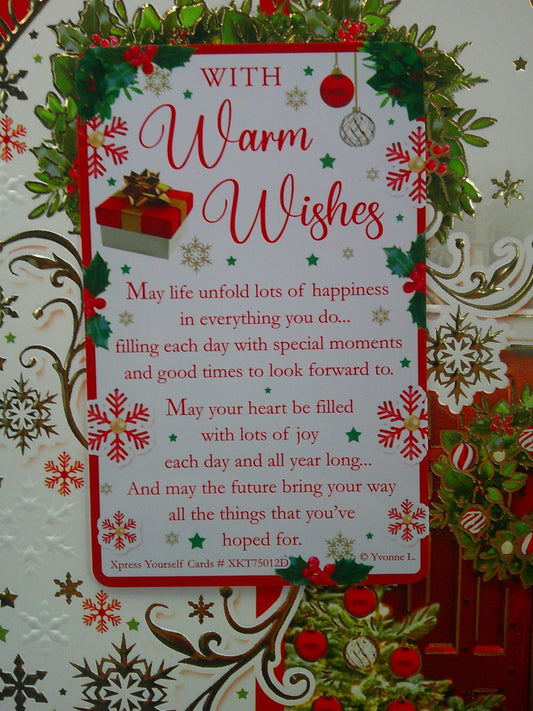 WITH
Warm
Wishes
May life unfold lots of happiness
in everything you do...
filling each day with special moments
and good times to look forward to.
May your heart be filled
with lots of joy
each day and all year long...
And may the future bring your way
all the things that you've
hoped for.
Xpress Yourself Cards # XKT75012D © Yvonne L.